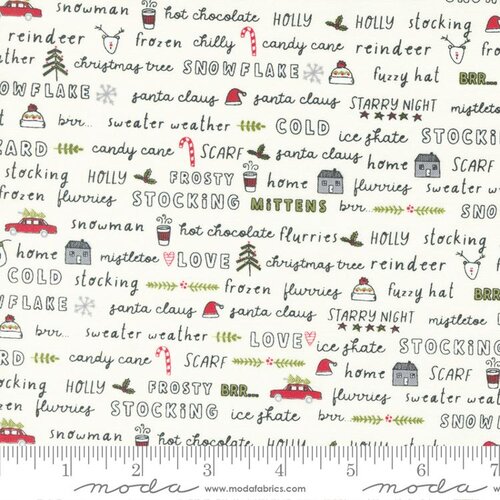 snowman hot chocolate HOLLY HOLLY stocking
reindeer frozen chilly candy cane reindeer
christmas tree SNOWFLAKE fuzzy hat BRR...
OWFLAKE santa claus santa claus STARRY NIGHT mistletoe
brr... sweater weather COLD ice skate STOCKING
ZARD candy cane SCARF santa claus home SCARF
stocking HOLLY FROSTY flurries sweater weather
frozen flurries STOCKING MITTENS brr... reindeer
snowman hot chocolate flurries HOLLY stocking
home mistletoe LOVE christmas tree reindeer
COLD stocking frozen flurries fuzzy hat BRR...
OWFLAKE santa claus santa claus STARRY NIGHT mistletoe
brr... sweater weather LOVE ice skate STOCKING
ARD candy cane SCARF home SCARF
stocking HOLLY FROSTY BRR... flurries sweater weather
frozen flurries STOCKING ice skate brr... SNOWFLAKE
snowman hot chocolate HOLLY HOLLY stocking
1 2 3 4 5 6 7
moda www.modafabrics.com moda